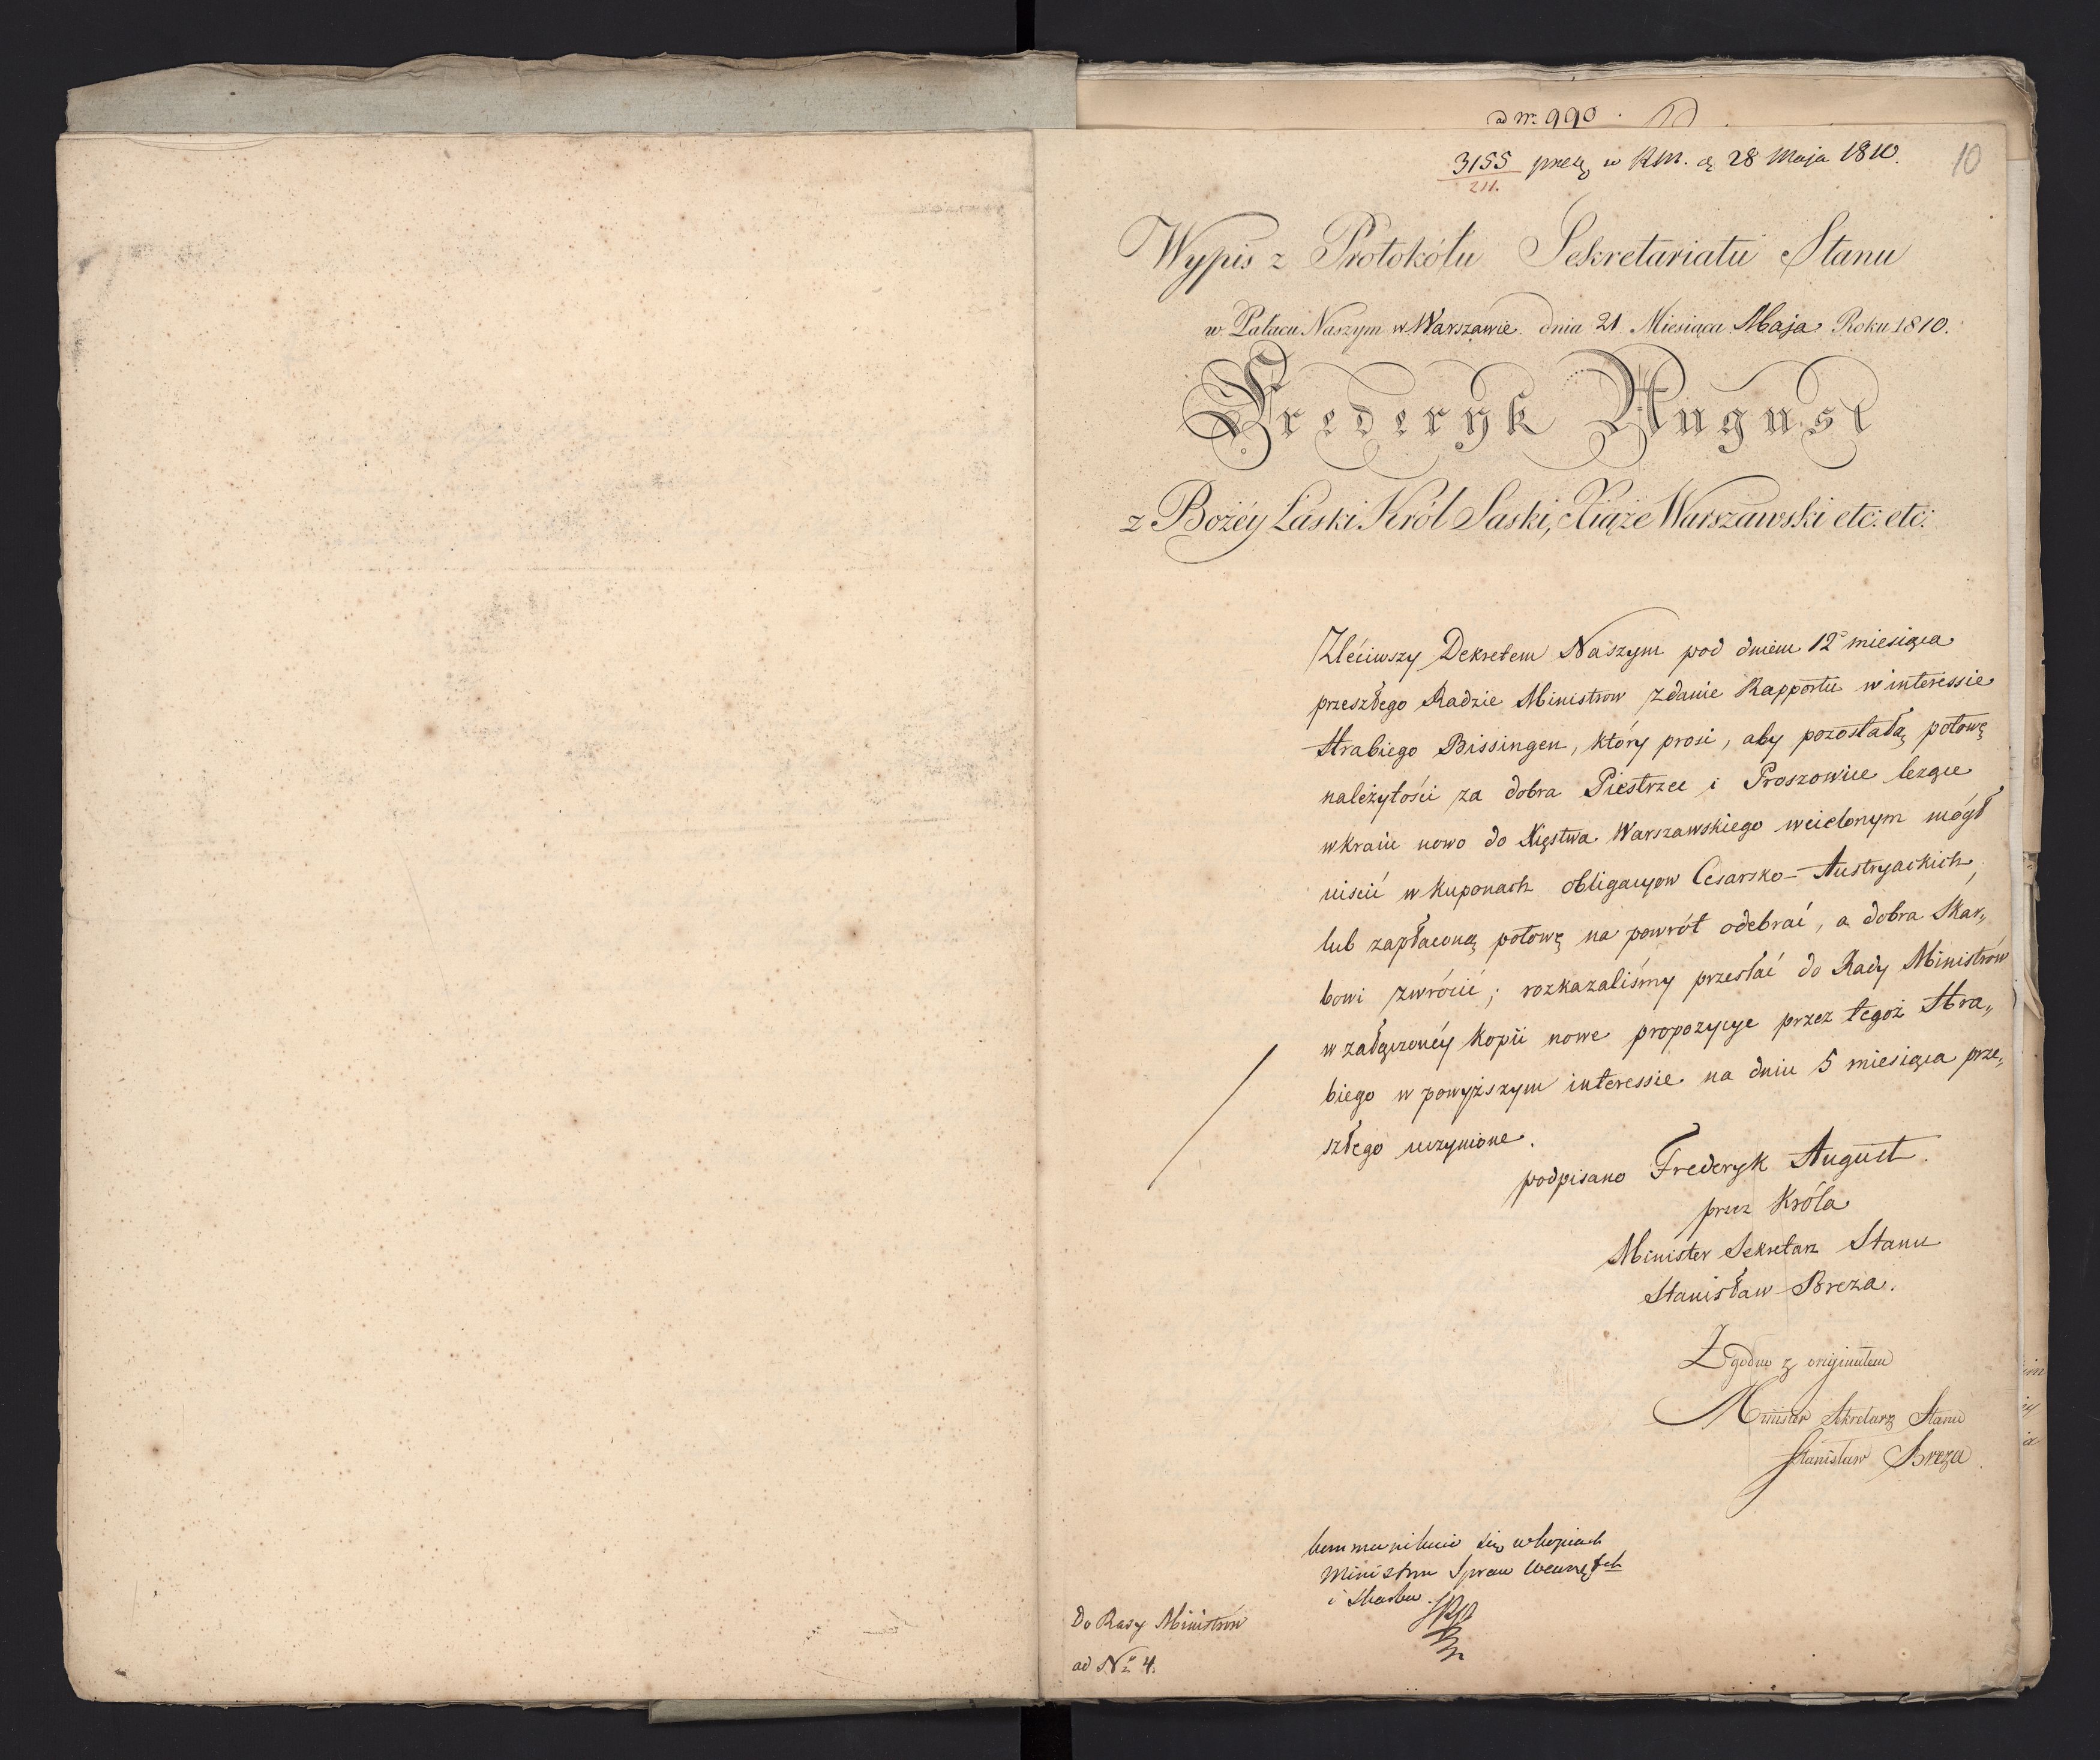 ad Nr. 990.
3155 prez w RM. d 28 Maja 1810.
211.
10
Wypis z Protokółu Sekretariatu Stanu
w Pałacu Naszym w Warszawie dnia 21 Miesiąca Maja Roku 1810.
Frederyk August
z Bożéy Łaski Król Saski, Xiąże Warszawski etc: etc:
Zléciwszy Dekretem Naszym pod dniem 12° miesiąca
przeszłego Radzie Ministrow zdanie Rapportu w interessie
Hrabiego Bissingen, który prosi, aby pozostałą połowę
należytości za dobra Piestrzec i Proszowice leżące
w kraiu nowo do Xięstwa Warszawskiego wcielonym mógł
uiscić w kuponach obligacyow Cesarsko-Austryackich,
lub zapłaconą połowę na powrót odebrać, a dobra Skar„
bowi zwrócić; rozkazaliśmy przesłać do Rady Ministrów
w załączonéy kopii nowe propozycye przez tegoż Hra„
biego w powyższym interessie na dniu 5 miesiąca prze„
szłego uczynione.
podpisano Frederyk August.
przez Króla
Minister Sekretarz Stanu
Stanisław Breza.
Zgodno z oryginałem
Minister Sekretarz Stanu
Stanisław Breza
kommunikuie się w kopiach
Ministrm Spraw Wewnętch
i Skarbu.
Do Rady Ministrów
ad No 4.